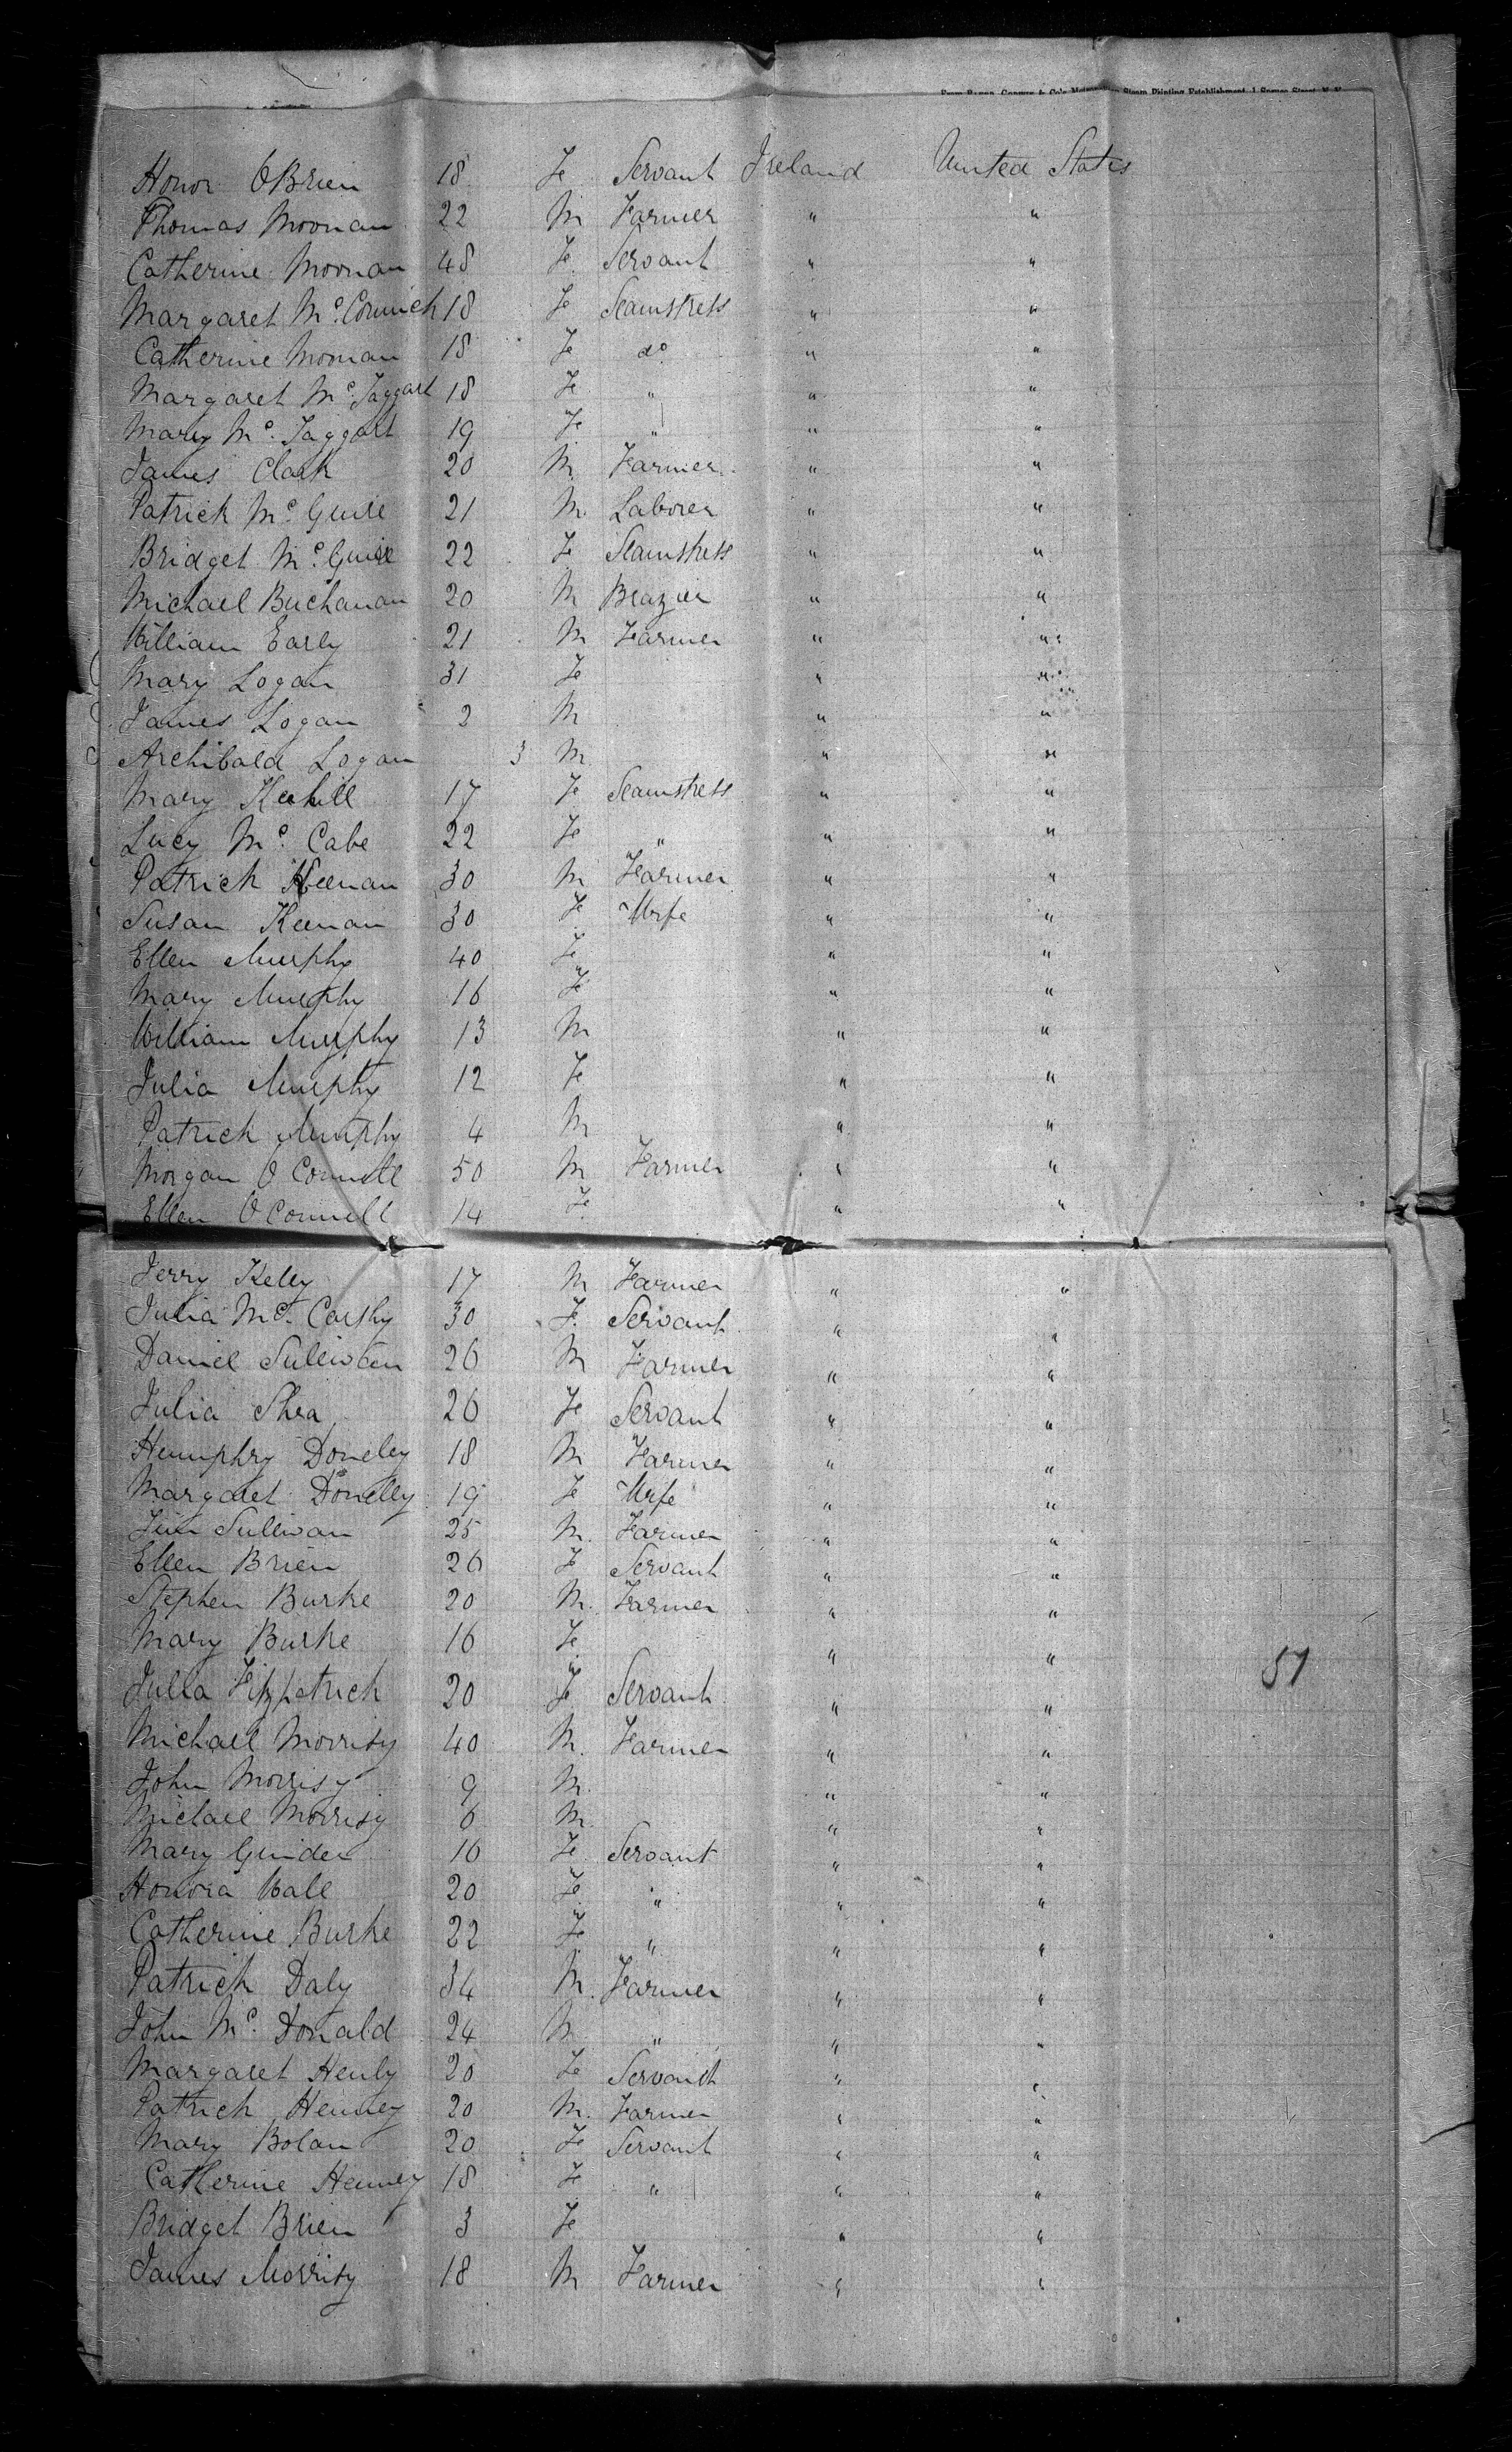 Honor O'Brien 18 Fe Servant Ireland United States
Thomas Moonan 22 M Farmer " "
Catherine Moonan 48 Fe Servant " "
Margaret Mc. Cormick 18 Fe Seamstress " "
Catherine Moonan 18 Fe do " "
Margaret Mc. Taggart 18 Fe " " "
Mary Mc. Taggart 19 Fe " " "
James Clark 20 M Farmer " "
Patrick Mc. Guire 21 M Laborer " "
Bridget Mc. Guire 22 Fe Seamstress " "
Michael Buchanan 20 M Brazier " "
William Early 21 M Farmer " "
Mary Logan 31 Fe " "
James Logan 2 M " "
Archibald Logan 3 M " "
Mary Keehill 17 Fe Seamstress " "
Lucy Mc. Cabe 22 Fe " " "
Patrick Keenan 30 M Farmer " "
Susan Keenan 30 Fe Wife " "
Ellen Murphy 40 Fe " "
Mary Murphy 16 Fe " "
William Murphy 13 M " "
Julia Murphy 12 Fe " "
Patrick Murphy 4 M " "
Morgan O Connell 50 M Farmer " "
Ellen O Connell 14 Fe " "
Jerry Kelly 17 M Farmer " "
Julia Mc. Carthy 30 Fe Servant " "
Daniel Sullivan 26 M Farmer " "
Julia Shea 26 Fe Servant " "
Humphry Doneley 18 M Farmer " "
Margaret Donelly 19 Fe Wife " "
Jim Sullivan 25 M Farmer " "
Ellen Brien 26 Fe Servant " "
Stephen Burke 20 M. Farmer " "
Mary Burke 16 Fe " "
51
Julia Fitzpatrick 20 Fe Servant " "
Michael Morrisy 40 M. Farmer " "
John Morrisy 9 M. " "
Michael Morrisy 6 M. " "
Mary 16 Fe Servant " "
Honora 20 Fe " " "
Catherine Burke 22 Fe " " "
Patrick Daly 34 M. Farmer " "
John Mc. Donald 24 M " " "
Margaret Henly 20 Fe Servant " "
Patrick Henney 20 M. Farmer " "
Mary Bolan 20 Fe Servant " "
Catherine Henney 18 Fe " " "
Bridget Brien 3 Fe " "
James Morrisy 18 M Farmer " "